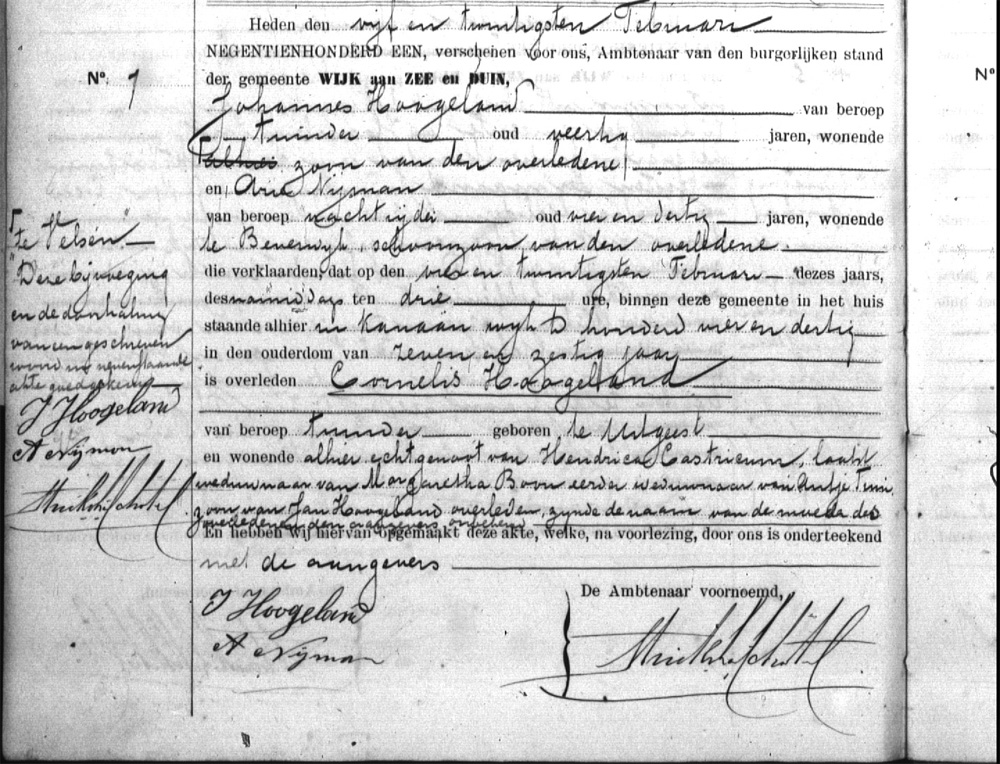 Heden den vijf en twintigsten Februari
NEGENTIENHONDERD EEN, verschenen voor ons, Ambtenaar van den burgerlijken stand
der gemeente WIJK aan ZEE en DUIN,
Nº. 7
Johannes Hoogeland van beroep
tuinder oud veertig jaren, wonende
alhier zoon van den overledene
en Arie Nijman
van beroep wachtrijder oud vier en dertig jaren, wonende
te Beverwijk, schoonzoon van den overledene.
die verklaarden, dat op den vier en twintigsten Februari dezes jaars,
des namiddags ten drie ure, binnen deze gemeente in het huis
staande alhier in Kanaän wijk D honderd vier en dertig
in den ouderdom van zeven en zestig jaar
is overleden Cornelis Hoogeland
van beroep tuinder geboren te Uitgeest
en wonende alhier echtgenoot van Hendrica Castricum, laatst
weduwnaar van Margaretha Boon eerder weduwnaar van Antje
zoon van Jan Hoogeland overleden, zijnde de naam van de moeder des
overledenen den aangevers onbekend
En hebben wij hiervan opgemaakt deze akte, welke, na voorlezing, door ons is onderteekend
met de aangevers
De Ambtenaar voornoemd,
J Hoogeland
A Nijman
te Velsen
Deze bijvoeging
en de doorhaling
van een geschreven
woord in nevenstaande
akte goedgekeurd
J Hoogeland
A Nijman
Nº